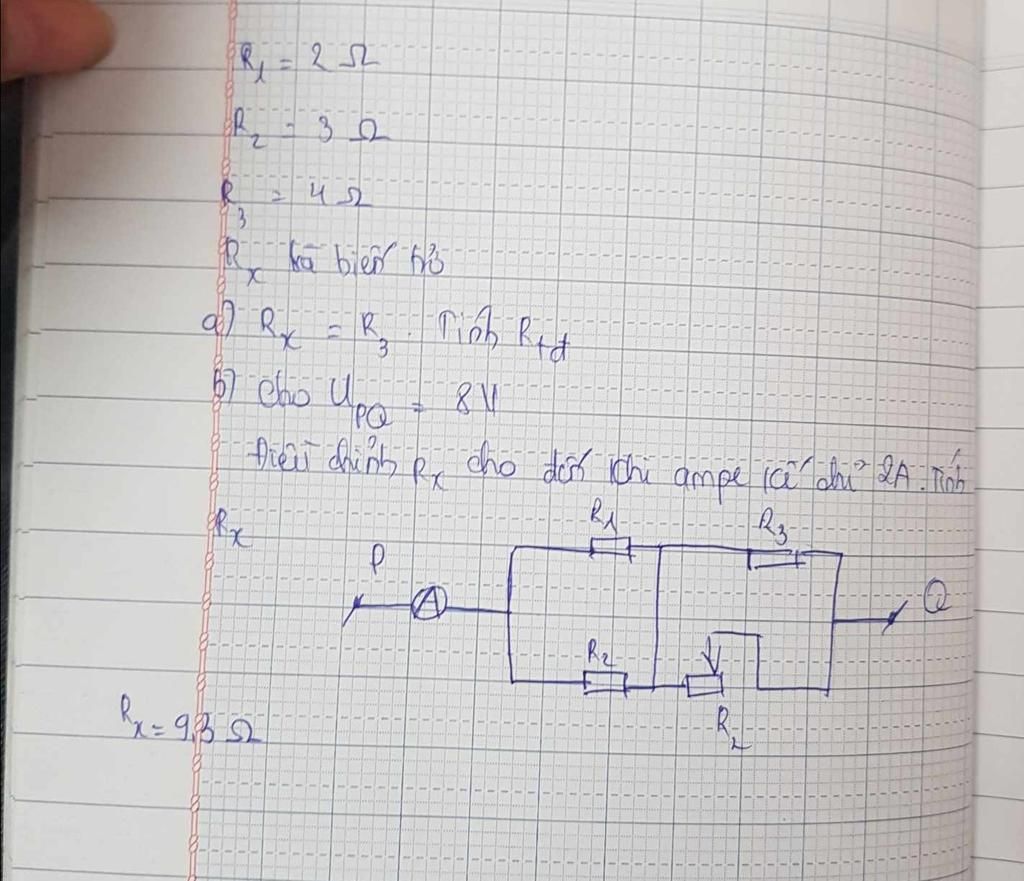 R₁ = 2 Ω
R₂ = 3 Ω
R₃ = 4 Ω
Rₓ là biến trở
a) Rₓ = R₃. Tính Rtđ
b) Cho U_PQ = 8V
Điều chỉnh Rₓ cho đến khi ampe kế chỉ 2A. Tính
Rₓ
R₁
R₃
P
A
Q
R₂
Rₓ
Rₓ = 9,3 Ω